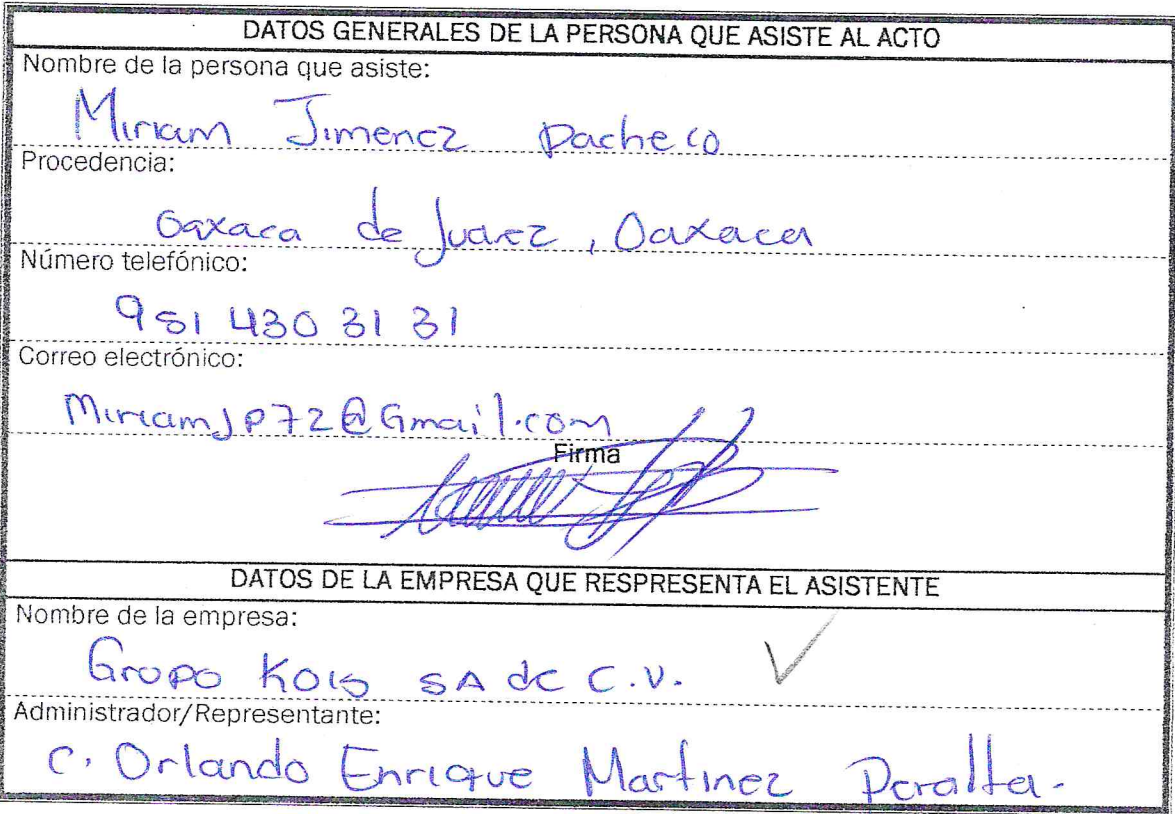 DATOS GENERALES DE LA PERSONA QUE ASISTE AL ACTO
Nombre de la persona que asiste:
Miriam Jimenez Pacheco
Procedencia:
Oaxaca de Juarez, Oaxaca
Número telefónico:
951 430 31 31
Correo electrónico:
MiriamJP72@Gmail.com
Firma
DATOS DE LA EMPRESA QUE RESPRESENTA EL ASISTENTE
Nombre de la empresa:
Grupo SA de C.V.
Administrador/Representante:
C. Orlando Enrique Martinez Peralta.